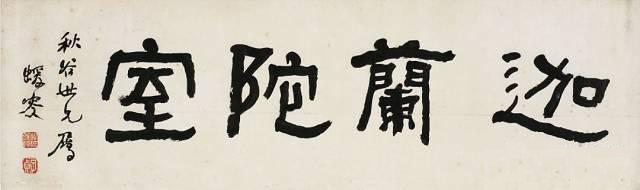 迦蘭陀室
秋谷世兄属
蝯叟